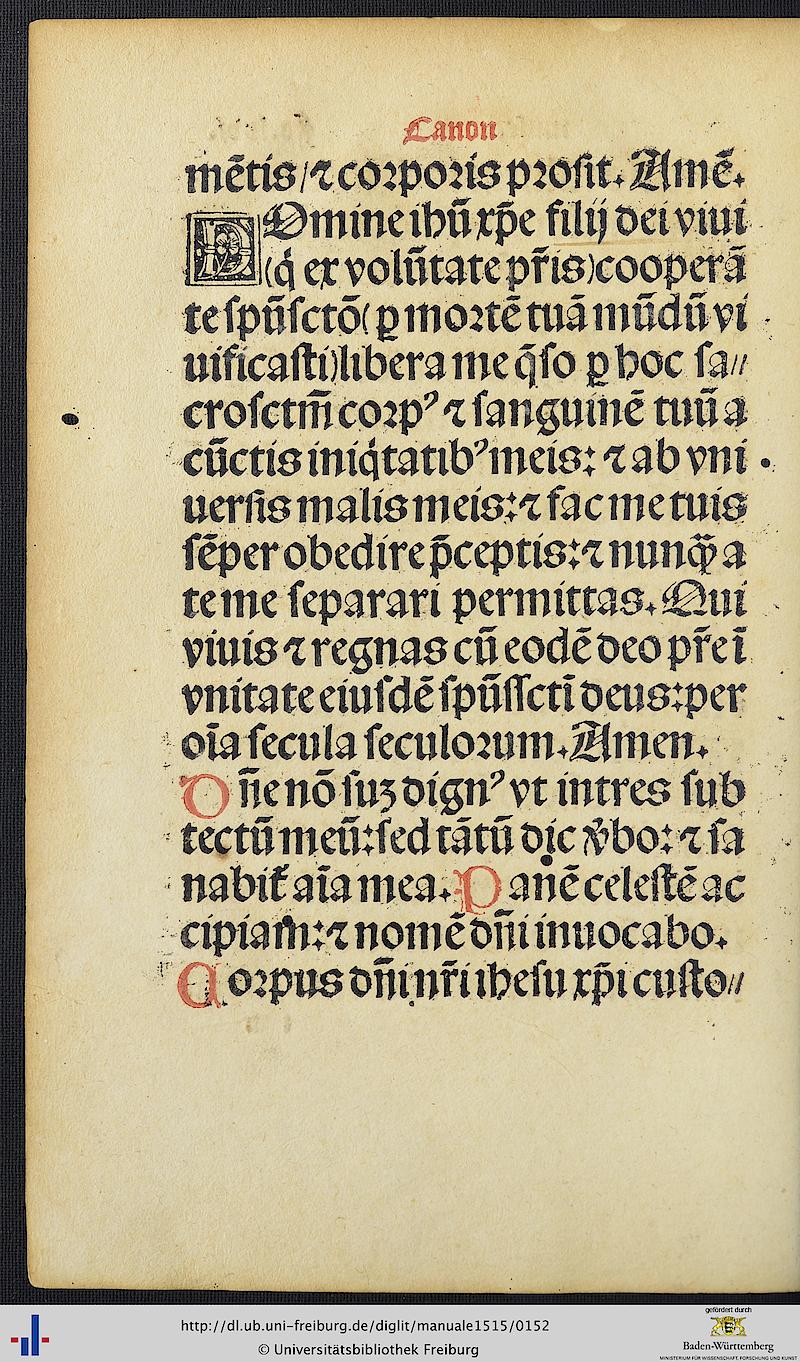 Canon
mētis/⁊ corporis prosit. Amē.
DOmine ihū xp̄e filij dei viui
(q̇ ex volūtate pr̄is) cooperā
te spūsctō( ꝑ mortē tuā mūdū vi
uificasti) libera me q̄so ꝑ hoc sa〃
crosctm̄ corpꝰ ⁊ sanguinē tuū a
cūctis iniq̇tatibꝰ meis: ⁊ ab vni
uersis malis meis: ⁊ fac me tuis
sēper obedire p̄ceptis: ⁊ nunq̄ a
te me separari permittas. Qui
viuis ⁊ regnas cū eodē deo pr̄e ī
vnitate eiusdē spūssctī deus: per
oīa secula seculorum. Amen.
Dn̄e nō suꝫ dignꝰ vt intres sub
tectū meū: sed tātū dic v̄bo: ⁊ sa
nabit̄ aīa mea. Panē celestē ac
cipiam: ⁊ nomē dn̄i inuocabo.
Corpus dn̄i nr̄i ihesu xp̄i custo〃
http://dl.ub.uni-freiburg.de/diglit/manuale1515/0152
© Universitätsbibliothek Freiburg
gefördert durch
Baden-Württemberg
MINISTERIUM FÜR WISSENSCHAFT, FORSCHUNG UND KUNST